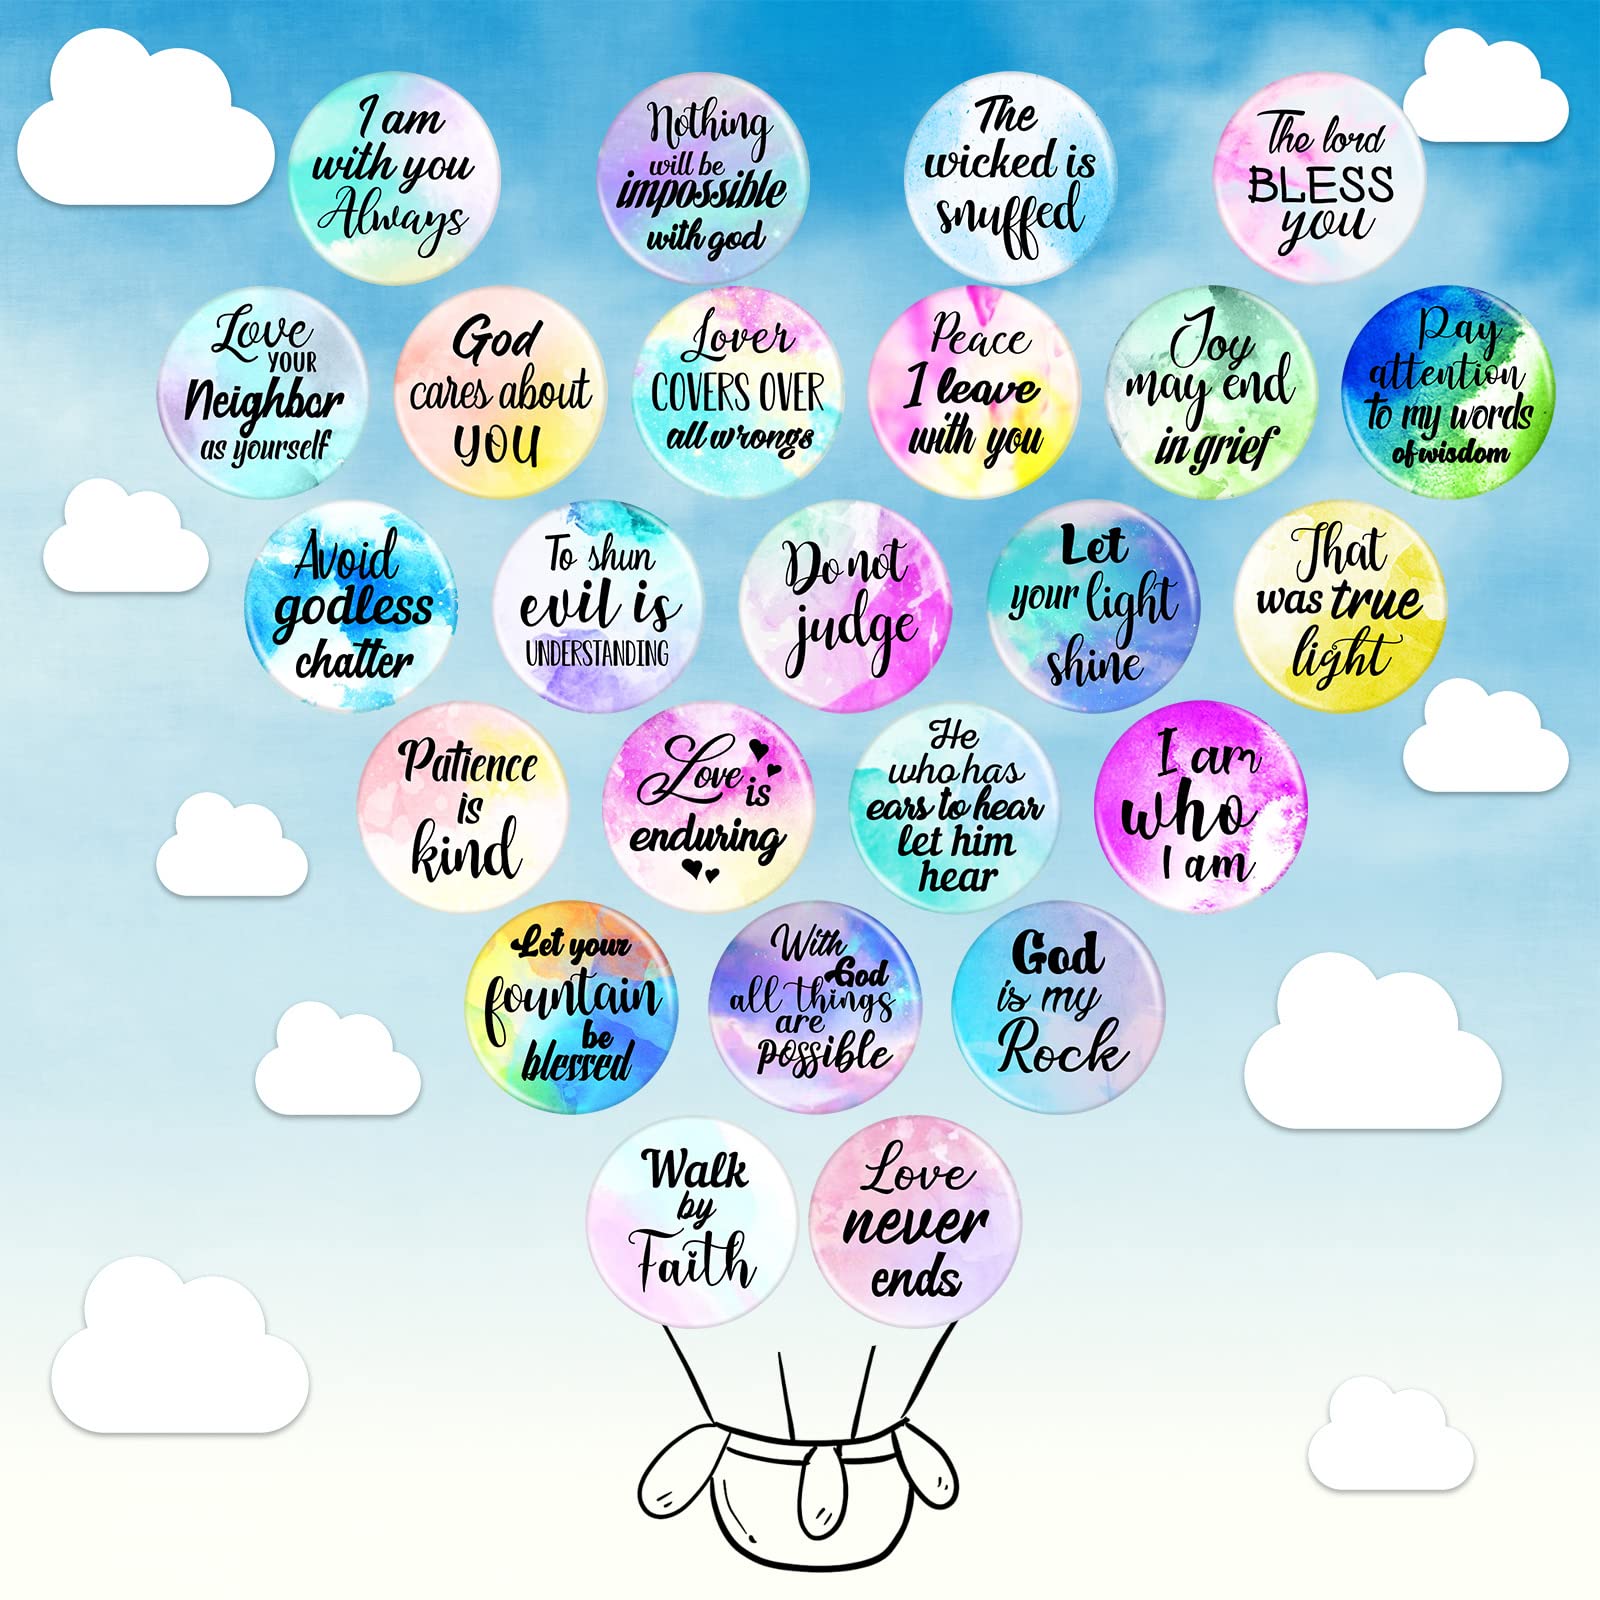 I am
with you
Always
Nothing
will be
impossible
with god
The
wicked is
snuffed
The lord
BLESS
you
Love
YOUR
Neighbor
as yourself
God
cares about
YOU
Lover
COVERS OVER
all wrongs
Peace
I leave
with you
Joy
may end
in grief
Pay
attention
to my words
of wisdom
Avoid
godless
chatter
To shun
evil is
UNDERSTANDING
Do not
judge
Let
your light
shine
That
was true
light
Patience
is
kind
Love
is
enduring
He
who has
ears to hear
let him
hear
I am
who
I am
Let your
fountain
be
blessed
With
God
all things
are
possible
God
is my
Rock
Walk
by
Faith
Love
never
ends